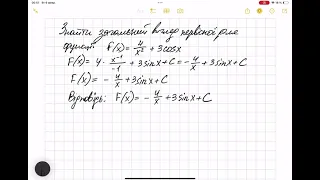 Знайти загальний вигляд первісної для
функції f(x) = 4/x² + 3cosx
F(x) = 4 · x⁻¹/-1 + 3sinx + C = -4/x + 3sinx + C
F(x) = - 4/x + 3sinx + C
Відповідь: F(x) = - 4/x + 3sinx + C